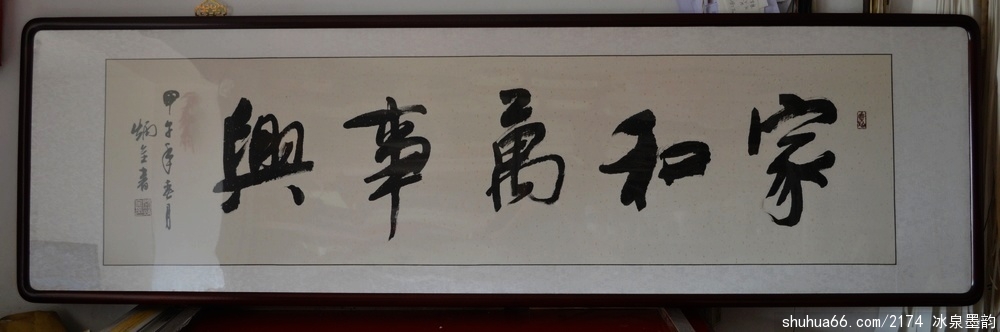 家和萬事興
甲午年春月
炳奎書
shuhua66.com/2174 冰泉墨韵